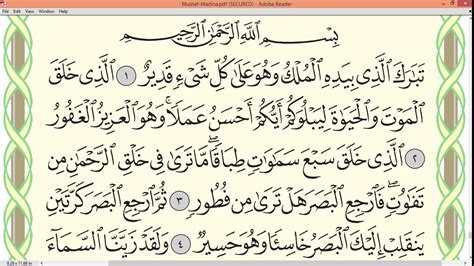 Mushaf-Madina.pdf (SECURED) - Adobe Reader
File Edit View Window Help
بِسْمِ ٱللَّهِ ٱلرَّحْمَٰنِ ٱلرَّحِيمِ
تَبَٰرَكَ ٱلَّذِى بِيَدِهِ ٱلْمُلْكُ وَهُوَ عَلَىٰ كُلِّ شَىْءٍ قَدِيرٌ ١ ٱلَّذِى خَلَقَ
ٱلْمَوْتَ وَٱلْحَيَوٰةَ لِيَبْلُوَكُمْ أَيُّكُمْ أَحْسَنُ عَمَلًا ۚ وَهُوَ ٱلْعَزِيزُ ٱلْغَفُورُ
٢ ٱلَّذِى خَلَقَ سَبْعَ سَمَٰوَٰتٍ طِبَاقًا ۖ مَّا تَرَىٰ فِى خَلْقِ ٱلرَّحْمَٰنِ مِن
تَفَٰوُتٍ ۖ فَٱرْجِعِ ٱلْبَصَرَ هَلْ تَرَىٰ مِن فُطُورٍ ٣ ثُمَّ ٱرْجِعِ ٱلْبَصَرَ كَرَّتَيْنِ
يَنقَلِبْ إِلَيْكَ ٱلْبَصَرُ خَاسِئًا وَهُوَ حَسِيرٌ ٤ وَلَقَدْ زَيَّنَّا ٱلسَّمَآءَ
8.20 x 11.00 in